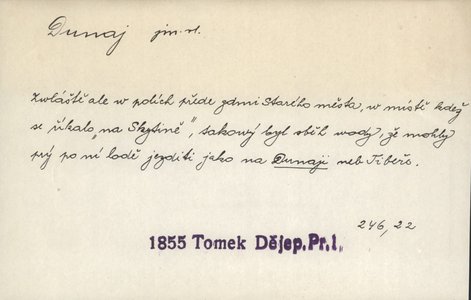 Dunaj jm. vl.
zwláště ale w polích přede zdmi Starého města, w místě kdež
se říkalo „na Skytině“, takowý byl sběh wody, že mohly
prý po ní lodě jezditi jako na Dunaji neb Tibeře.
246, 22
1855 Tomek Dějep. Pr. I.